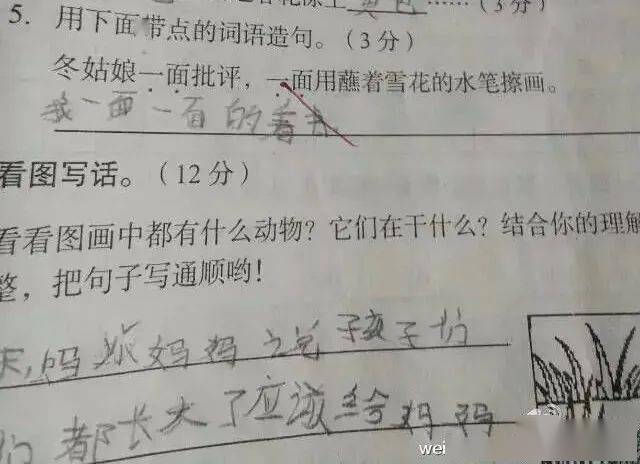 5. 用下面带点的词语造句。（3分）
冬姑娘一面批评，一面用蘸着雪花的水笔擦画。
我一面一面的看书
看图写话。（12分）
看看图画中都有什么动物？它们在干什么？结合你的理解
整，把句子写通顺哟！
天,妈 妈妈 说 孩子们
们 都长大了应该给妈妈
wei